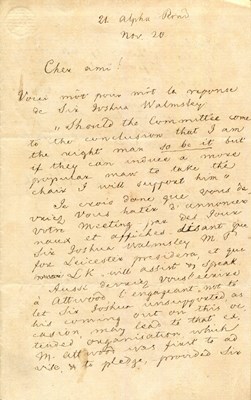 21 Alpha Road
Nov. 20
Cher ami!
Voici môt pour môt la reponse
de Sir Joshua Walmsley
"Should the Committee come
to the conclusion that I am
the right man so be it but
if they can induce a more
popular man to take the
chair I will support him"
Je crois donc que vous de
vriez Vous hater d'annoncer
votre Meeting par des Jour
naux et affiches disant que
Sir Joshua Walmsley M.P.
for Leicester presidera, et que
L.K. will assist & speak.
Aussi devriez Vous écrire
à Attwood l'engageant, not to
let Sir Joshua unsupported as
his coming out on this oc
casion may lead to that ex
tended organisation which
M. Attwood was first to ad
vise, & to pledge, provided Sir